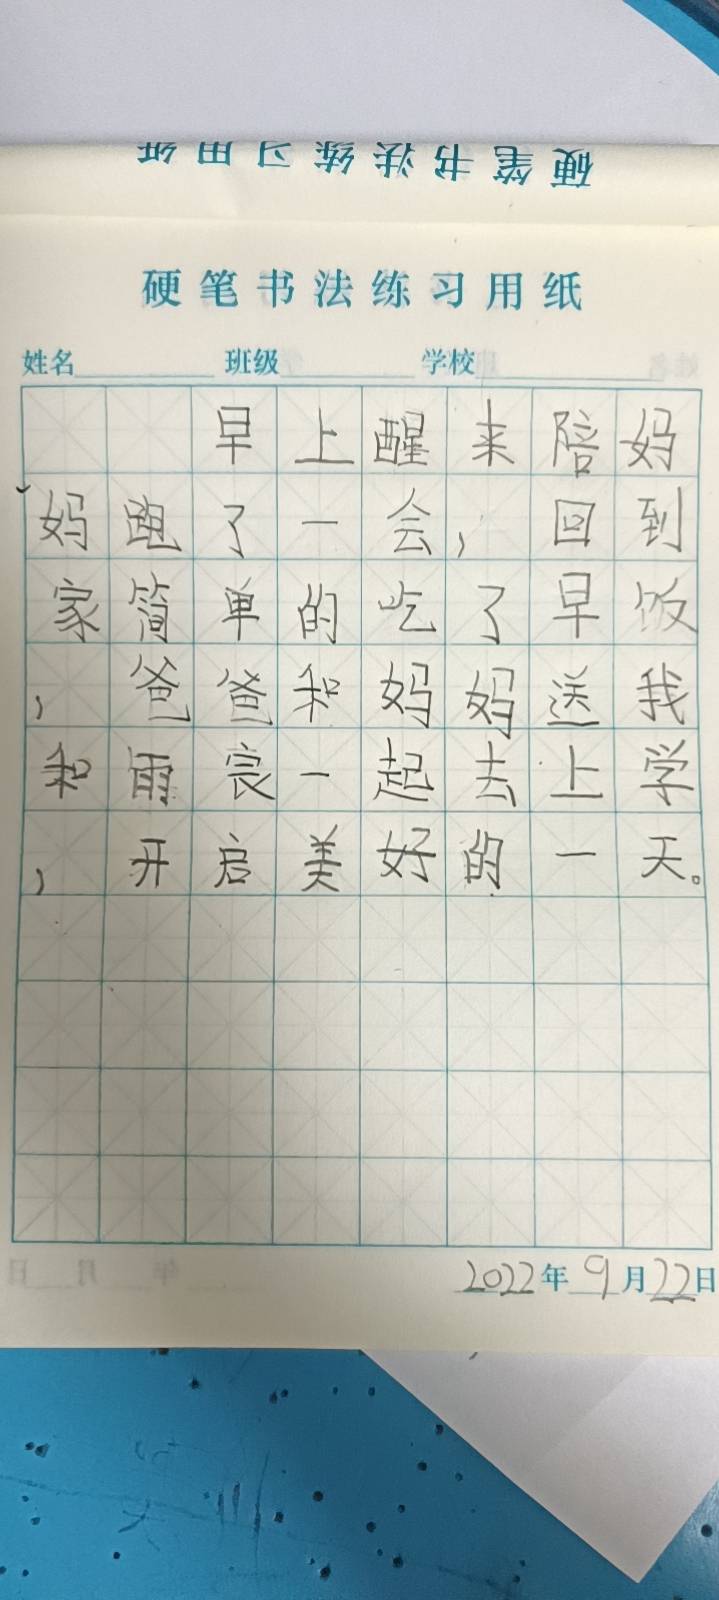 硬笔书法练习用纸
硬笔书法练习用纸
姓名 班级 学校
早上醒来陪妈
妈跑了一会，回到
家简单的吃了早饭
，爸爸和妈妈送我
和雨宸一起去上学
，开启美好的一天。
2022年9月22日